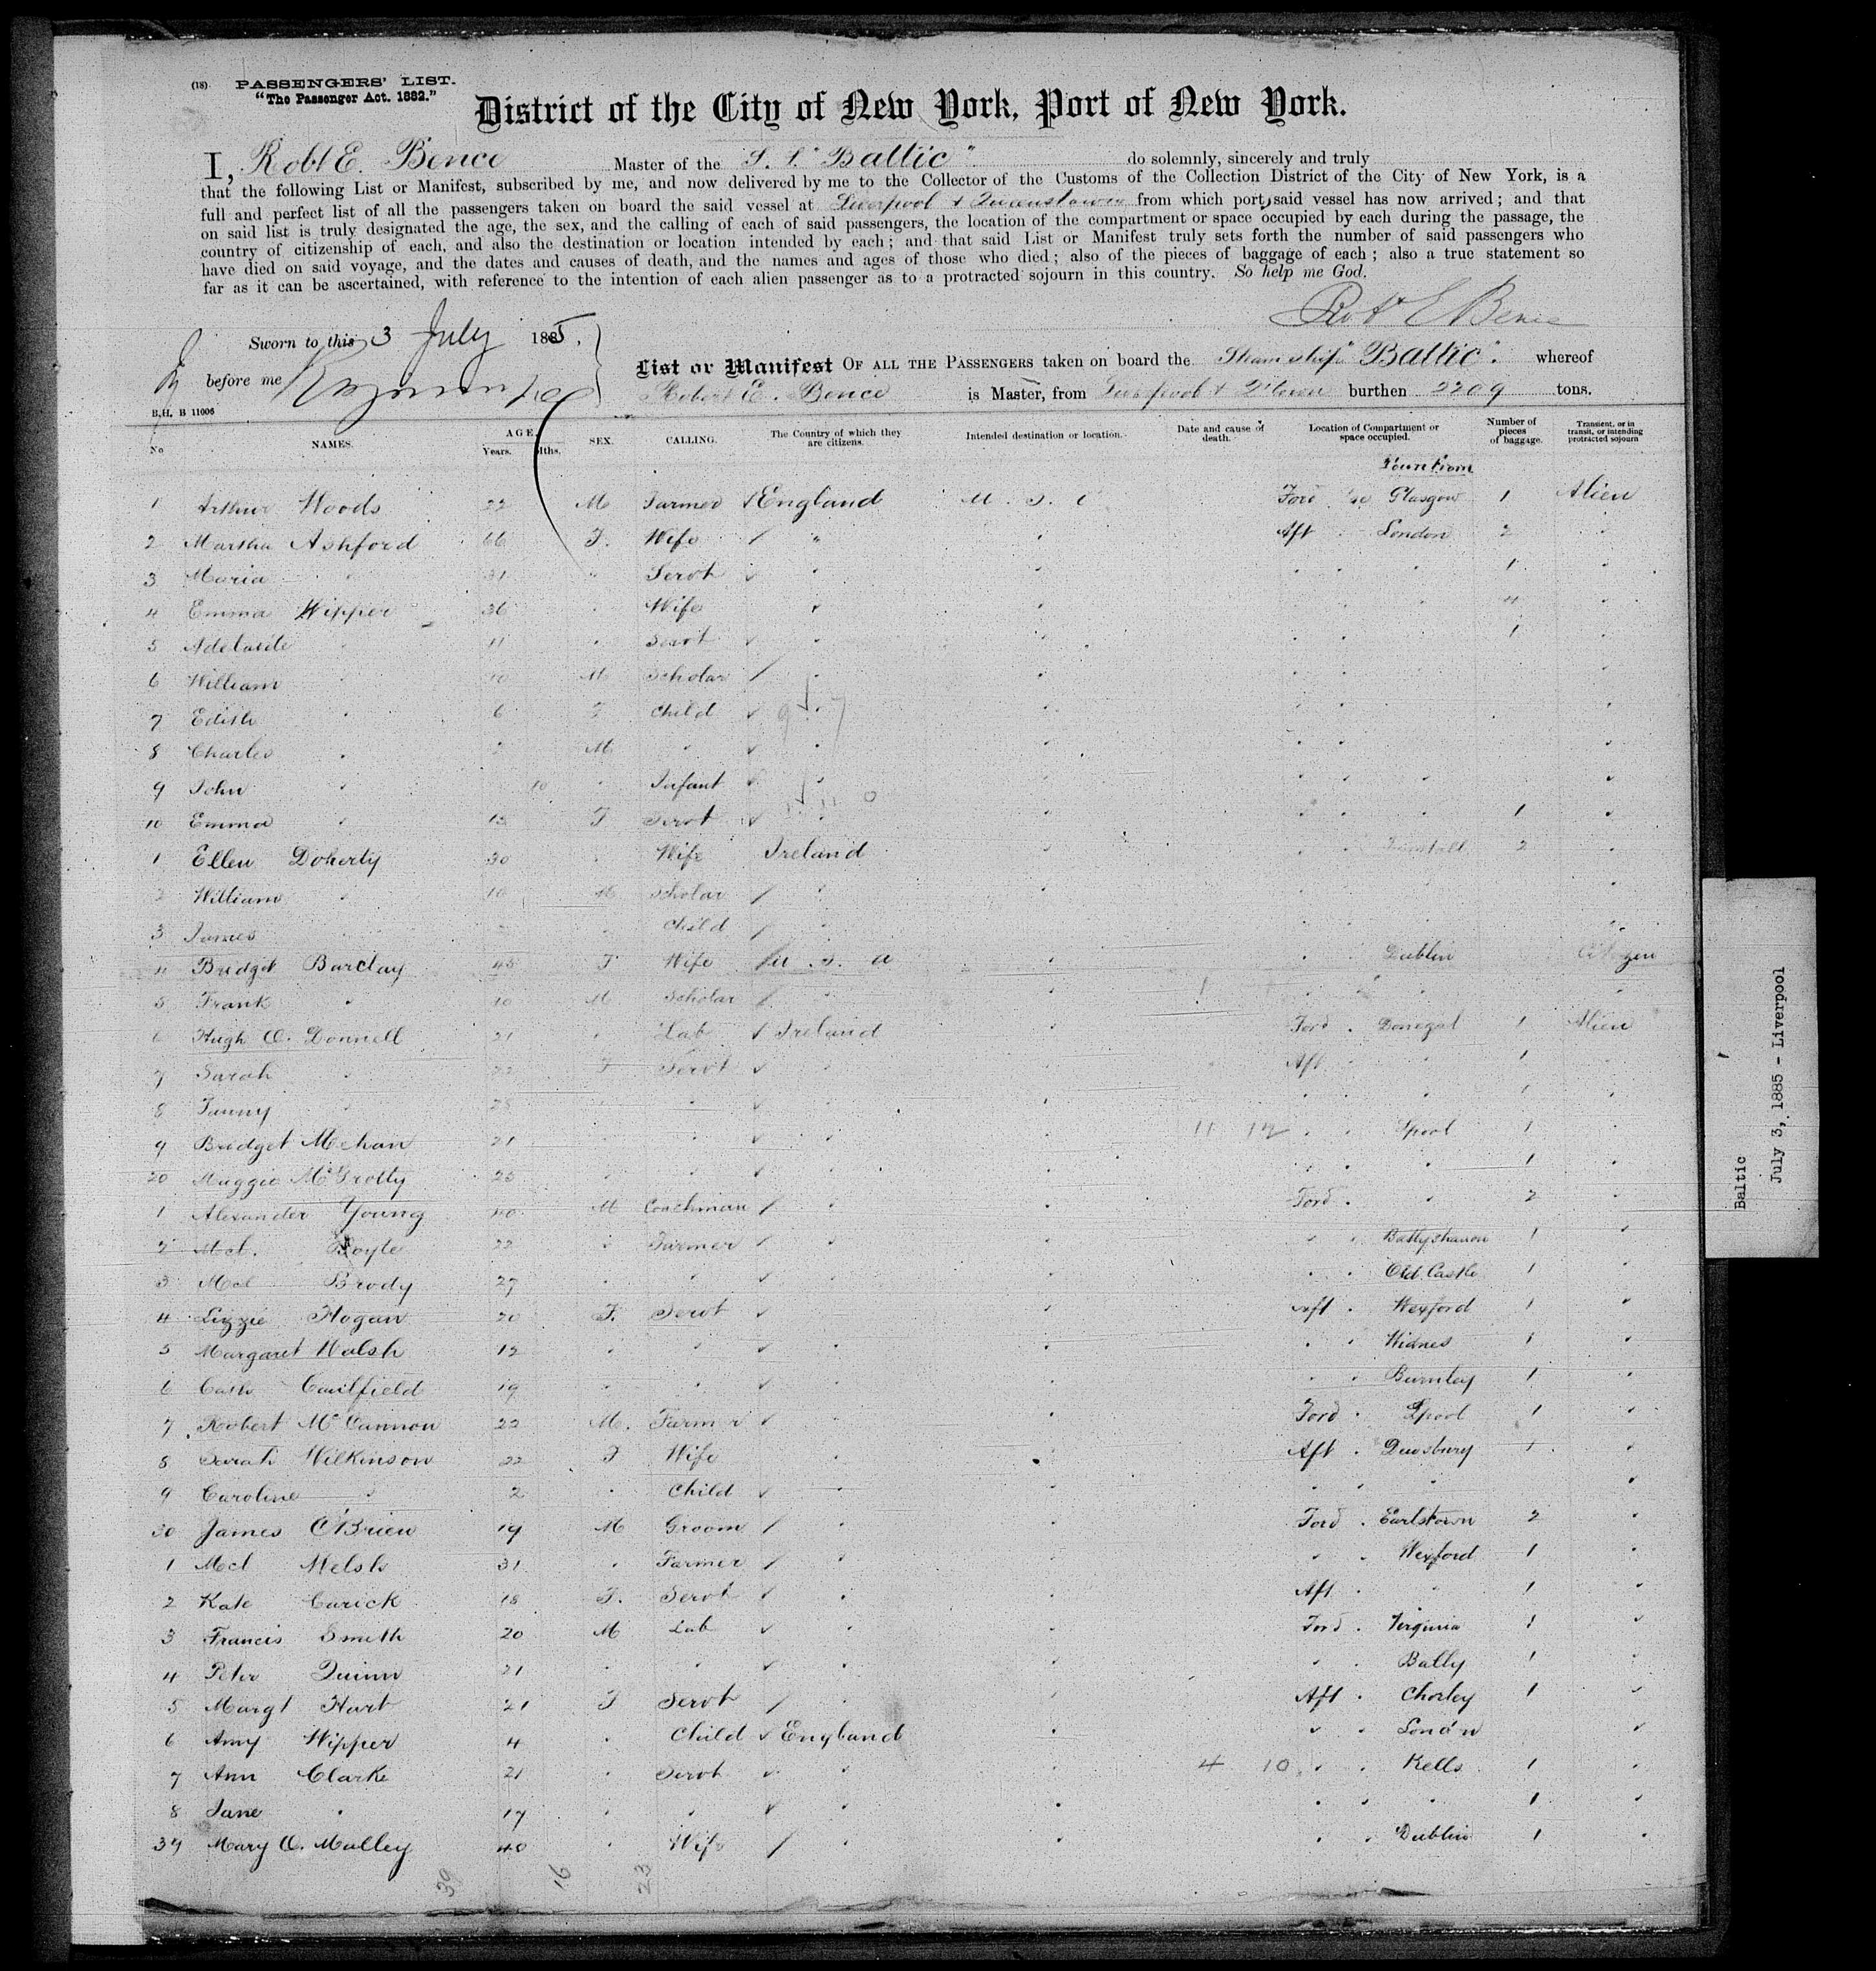 (18) PASSENGERS' LIST.
"The Passenger Act. 1882."
District of the City of New York, Port of New York.
I, Robt E. Bence Master of the S.S. "Baltic" do solemnly, sincerely and truly
that the following List or Manifest, subscribed by me, and now delivered by me to the Collector of the Customs of the Collection District of the City of New York, is a
full and perfect list of all the passengers taken on board the said vessel at Liverpool + Queenstown from which port, said vessel has now arrived; and that
on said list is truly designated the age, the sex, and the calling of each of said passengers, the location of the compartment or space occupied by each during the passage, the
country of citizenship of each, and also the destination or location intended by each; and that said List or Manifest truly sets forth the number of said passengers who
have died on said voyage, and the dates and causes of death, and the names and ages of those who died; also of the pieces of baggage of each; also a true statement so
far as it can be ascertained, with reference to the intention of each alien passenger as to a protracted sojourn in this country. So help me God.
Robt E Bence
Sworn to this 3 July 1885,
before me
List or Manifest OF ALL THE PASSENGERS taken on board the Steamship "Baltic". whereof
Robert E. Bence is Master, from Liverpool + Q'town burthen 2209 tons.
B.H. B 11006
No NAMES. AGE. Years. Mths. SEX. CALLING. The Country of which they are citizens. Intended destination or location. Date and cause of death. Location of Compartment or space occupied. Number of pieces of baggage. Transient, or in transit, or intending protracted sojourn
1 Arthur Woods 22 M Farmer England U.S. Ford Glasgow 1 Alien
2 Martha Ashford 66 F. Wife " Aft London 2
3 Maria " 31 " Servt " 1
4 Emma Wipper 36 " Wife " 4
5 Adelaide " 11 " Servt " 1
6 William " 10 M Scholar "
7 Edith " 6 F Child "
8 Charles " M " "
9 John " 10 " Infant "
10 Emma " 13 F Servt " 1
1 Ellen Doherty 30 " Wife Ireland 2
2 William " 10 M Scholar "
3 James " " Child "
4 Bridget Barclay 45 F Wife U.S.A Dublin Citizen
5 Frank " 10 M Scholar "
6 Hugh O. Donnell 21 " Lab Ireland Ford Donegal 1 Alien
7 Sarah " 22 F Servt " Aft " 1
8 Fanny " 28 " " " 1
9 Bridget Mehan 21 " " " 11 12 Lpool 1
20 Maggie McGrotty 25 " " " 1
1 Alexander Young 40 M Coachman " Ford " 2
2 Mcl. Boyle 22 " Farmer " Ballyshanon 1
3 Mcl Brody 27 " " " Old Castle 1
4 Lizzie Hogan 20 F. Servt " Aft Wexford 1
5 Margaret Walsh 19 " " " Widnes 1
6 Cath Caulfield 19 " " " Burnley 1
7 Robert McCannon 22 M. Farmer " Ford Lpool 1
8 Sarah Wilkinson 22 F Wife " Aft Dewsbury 1
9 Caroline " 2 " Child " "
30 James O'Brien 19 M Groom " Ford Earlstown 2
1 Mcl Welsh 31 " Farmer " Wexford 1
2 Kate Carick 18 F. Servt " Aft " 1
3 Francis Smith 20 M Lab " Ford Virginia 1
4 Peter Quinn 21 " " " Bally 1
5 Margt Hart 21 F Servt " Aft Chorley 1
6 Amy Wipper 4 " Child England London
7 Ann Clarke 21 " Servt " 4 10 Kells 1
8 Jane " 17 " " " " 1
39 Mary O. Malley 40 " Wife " Dublin 1
39 16 23
Baltic
July 3, 1885 - Liverpool